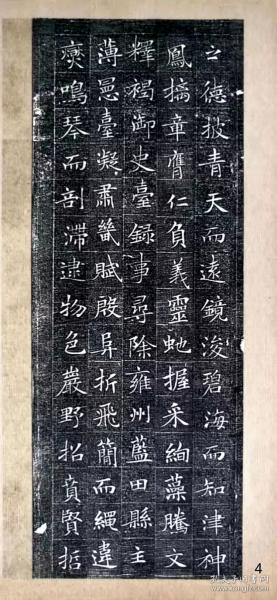 之德披青天而遠鏡浚碧海而知津神
鳳摛章膺仁負義靈虵握采絢藻騰文
釋褐御史臺錄事尋除雍州藍田縣主
薄臺凝肅畿賦殷异折飛簡而繩違
爕鳴琴而剖滯逮物色巖野招賁賢
4
孔夫子旧书网